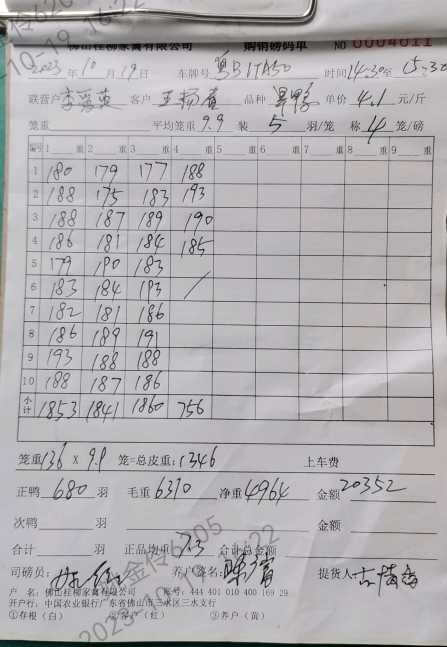 佛山桂柳家禽有限公司 购销磅码单 NO 0004011
2023年10月19日 车牌号 粤B1TA50 时间14:30至15:30
联营户 李爱英 客户 品种 单价 4.1 元/斤
笼重 平均笼重 9.9 装 5 羽/笼 称 4 笼/磅
编号 1 重 2 重 3 重 4 重 5 重 6 重 7 重 8 重 9 重
1 180 179 177 188
2 188 175 183 193
3 188 187 189 190
4 186 181 184 185
5 179 190 183
6 183 184 193 /
7 182 181 186
8 186 189 191
9 193 188 188
10 188 187 186
小计 1853 1841 1860 756
笼重 136 X 9.9 笼=总皮重: 1346 上车费
正鸭 680 羽 毛重 6310 净重 4964 金额 20352
次鸭 羽 金额
合计 羽 正品均重 7.3 合计总金额
司磅员: 养户签名: 提货人:
户 名: 佛山桂柳家禽有限公司 账号: 444 401 010 400 169 29
开户行: 中国农业银行广东省佛山市三水区三水支行
①存根(白) ②客户(红) ③养户(黄)